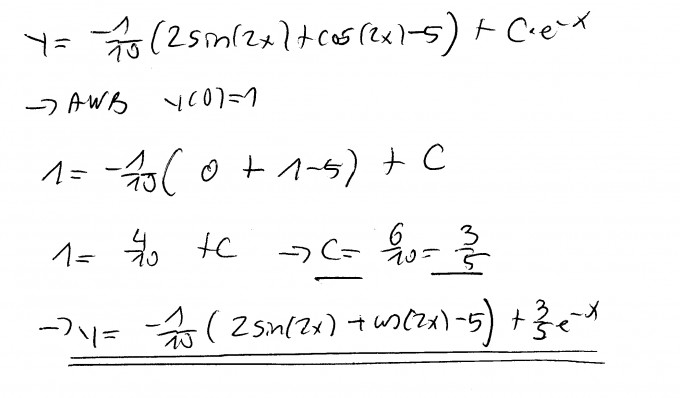 y = -1/10 (2sin(2x) + cos(2x) - 5) + C·e^-x
→ AWB y(0)=1
1 = -1/10 ( 0 + 1 - 5) + C
1 = 4/10 + C → C = 6/10 = 3/5
→ y = -1/10 ( 2sin(2x) + cos(2x) - 5) + 3/5 e^-x